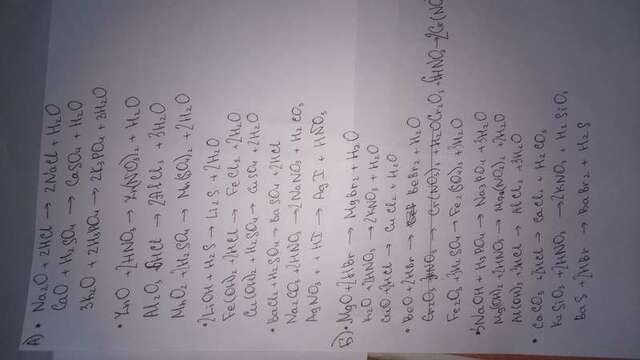 А) • Na2O + 2HCl → 2NaCl + H2O
CaO + H2SO4 → CaSO4 + H2O
3K2O + 2H3PO4 → 2K3PO4 + 3H2O
• ZnO + 2HNO3 → Zn(NO3)2 + H2O
Al2O3 + 6HCl → 2AlCl3 + 3H2O
MnO2 + 2H2SO4 → Mn(SO4)2 + 2H2O
• 2LiOH + H2S → Li2S + 2H2O
Fe(OH)2 + 2HCl → FeCl2 + 2H2O
Cu(OH)2 + H2SO4 → CuSO4 + 2H2O
• BaCl2 + H2SO4 → BaSO4 + 2HCl
Na2CO3 + 2HNO3 → 2NaNO3 + H2CO3
AgNO3 + HI → AgI + HNO3
Б) • MgO + 2HBr → MgBr2 + H2O
K2O + 2HNO3 → 2KNO3 + H2O
CuO + 2HCl → CuCl2 + H2O
• BaO + 2HBr → BaBr2 + H2O
Cr2O3 + 6HNO3 → 2Cr(NO3)
Fe2O3 + 3H2SO4 → Fe2(SO4)3 + 3H2O
• 3NaOH + H3PO4 → Na3PO4 + 3H2O
Mg(OH)2 + 2HNO3 → Mg(NO3)2 + 2H2O
Al(OH)3 + 3HCl → AlCl3 + 3H2O
• CaCO3 + 2HCl → CaCl2 + H2CO3
K2SiO3 + 2HNO3 → 2KNO3 + H2SiO3
BaS + 2HBr → BaBr2 + H2S